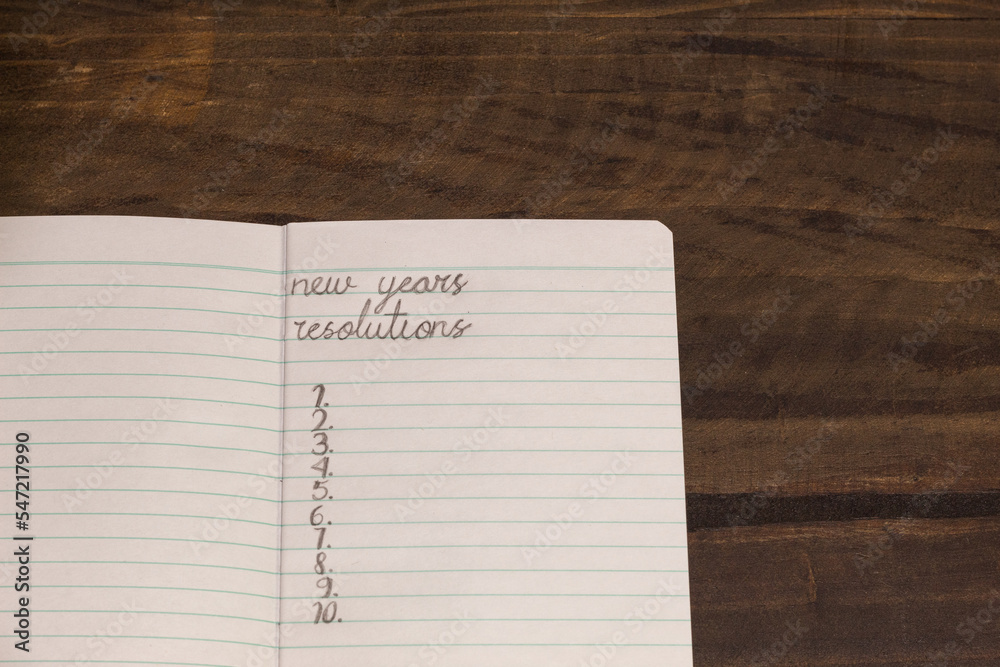 new years
resolutions
1.
2.
3.
4.
5.
6.
7.
8.
9.
10.
Adobe Stock | #547217990